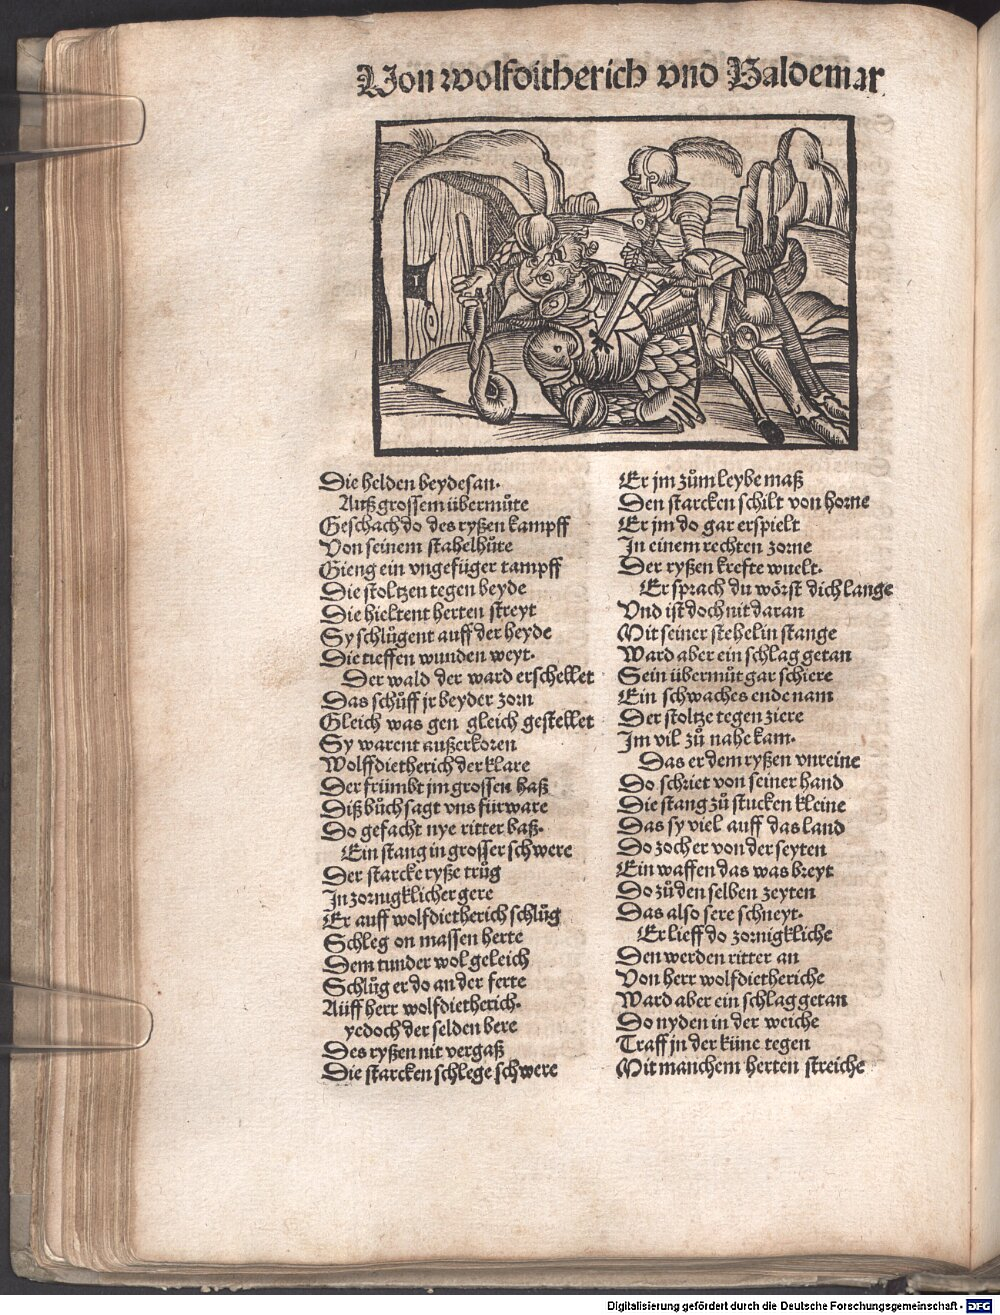 Von wolfditherich vnd Baldemar
Die helden beydesan.
Auß grossem übermůte
Geschach do des ryßen kampff
Von seinem stahelhůte
Gieng ein vngefüger tampff
Die stoltzen tegen beyde
Die hieltent herten streyt
Sy schlůgent auff der heyde
Die tieffen wunden weyt.
Der wald der ward erschellet
Das schůff jr beyder zorn
Gleich was gen gleich gestellet
Sy warent außerkoren
Wolffdietherich der klare
Der frümbt jm grossen haß
Diß bůch sagt vns fürware
Do gefacht nye ritter baß.
Ein stang in grosser schwere
Der starcke ryße trůg
In zornigklicher gere
Er auff wolfdietherich schlůg
Schleg on massen herte
Dem tunder wol geleich
Schlůg er do an der ferte
Auff herr wolfdietherich.
yedoch der selden bere
Des ryßen nit vergaß
Die starcken schlege schwere
Er jm zům leybe maß
Den starcken schilt von horne
Er jm do gar erspielt
In einem rechten zorne
Der ryßen krefte wuelt.
Er sprach du wörst dich lange
Vnd ist doch nit daran
Mit seiner stehelin stange
Ward aber ein schlag getan
Sein übermůt gar schiere
Ein schwaches ende nam
Der stoltze tegen ziere
Im vil zů nahe kam.
Das er dem ryßen vnreine
Do schriet von seiner hand
Die stang zů stucken kleine
Das sy viel auff das land
Do zoch er von der seyten
Ein waffen das was breyt
Do zů den selben zeyten
Das also sere schneyt.
Er lieff do zornigkliche
Den werden ritter an
Von herr wolfdietheriche
Ward aber ein schlag getan
Do nyden in der weiche
Traff jn der küne tegen
Mit manchem herten streiche
Digitalisierung gefördert durch die Deutsche Forschungsgemeinschaft - DFG